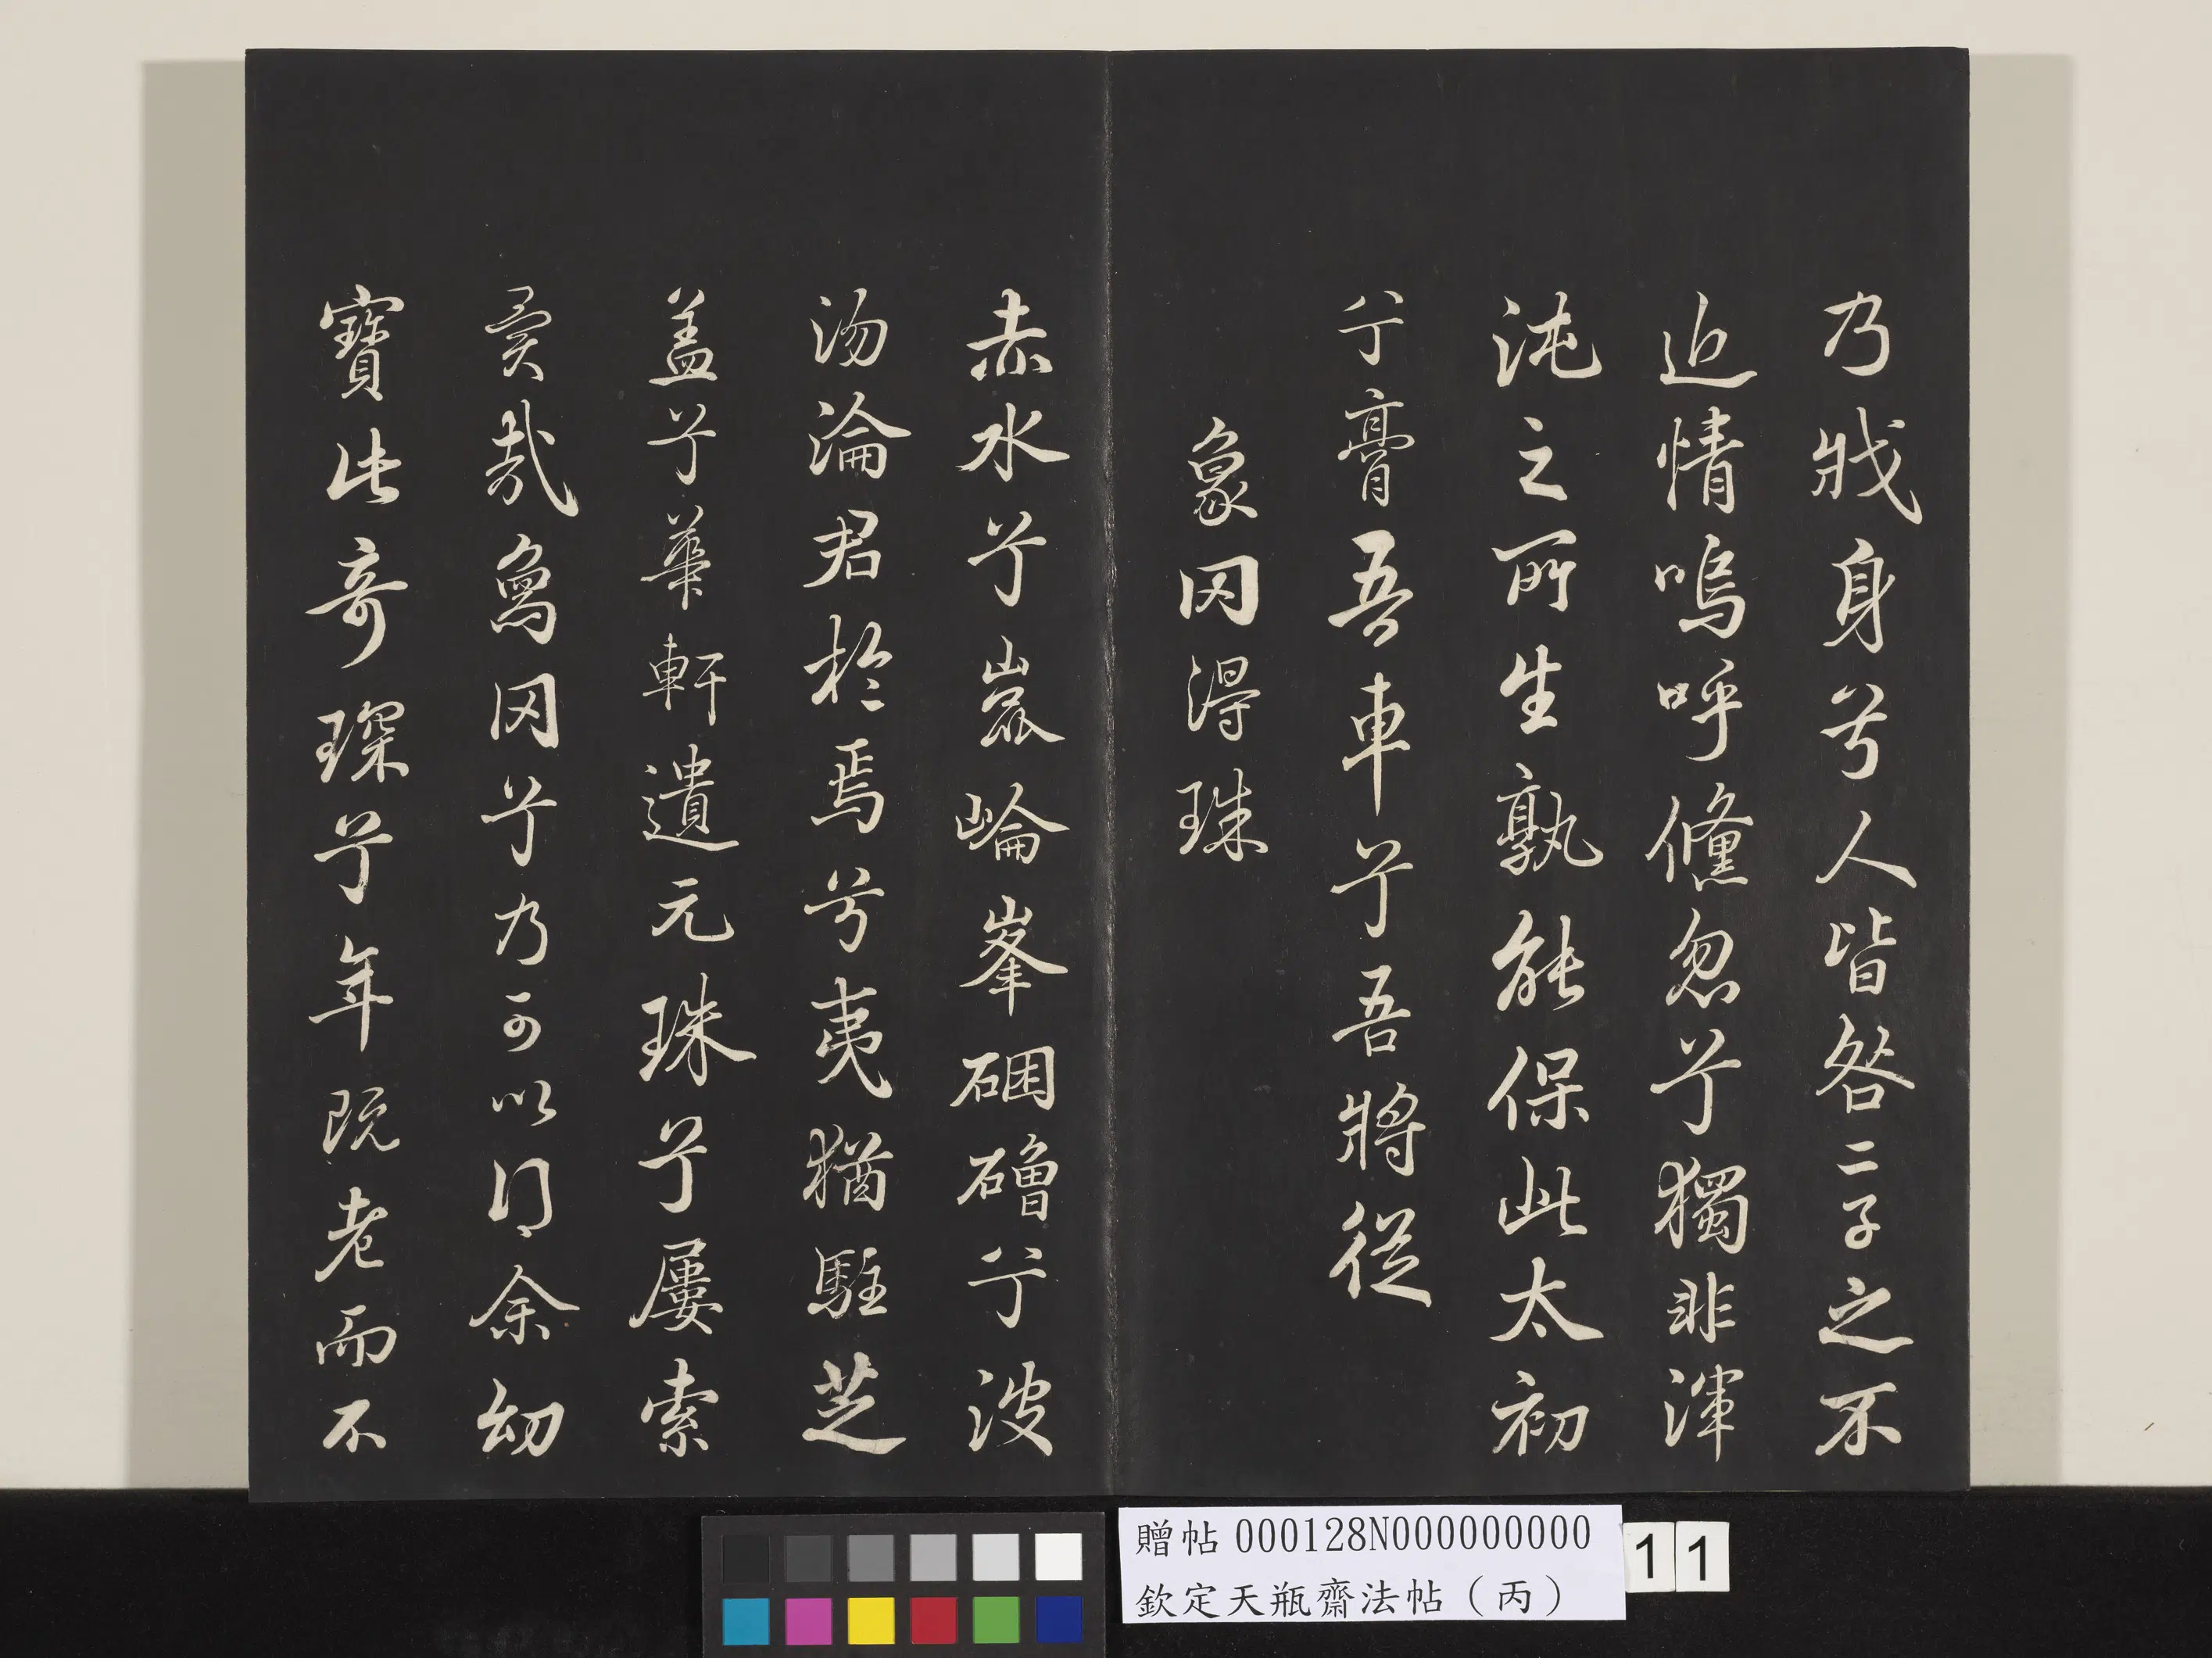 乃戕身兮人皆咎二子之不
近情嗚呼儵忽兮獨非渾
沌之所生孰能保此太初
兮膏吾車兮吾將從
象罔得珠
赤水兮崑崙峯硱磳兮波
沕淪君於焉兮夷猶駐芝
蓋兮華軒遺元珠兮屢索
異哉象罔兮乃可以得余幼
寶此奇琛兮年既老而不
贈帖 000128N000000000
欽定天瓶齋法帖（丙）
11